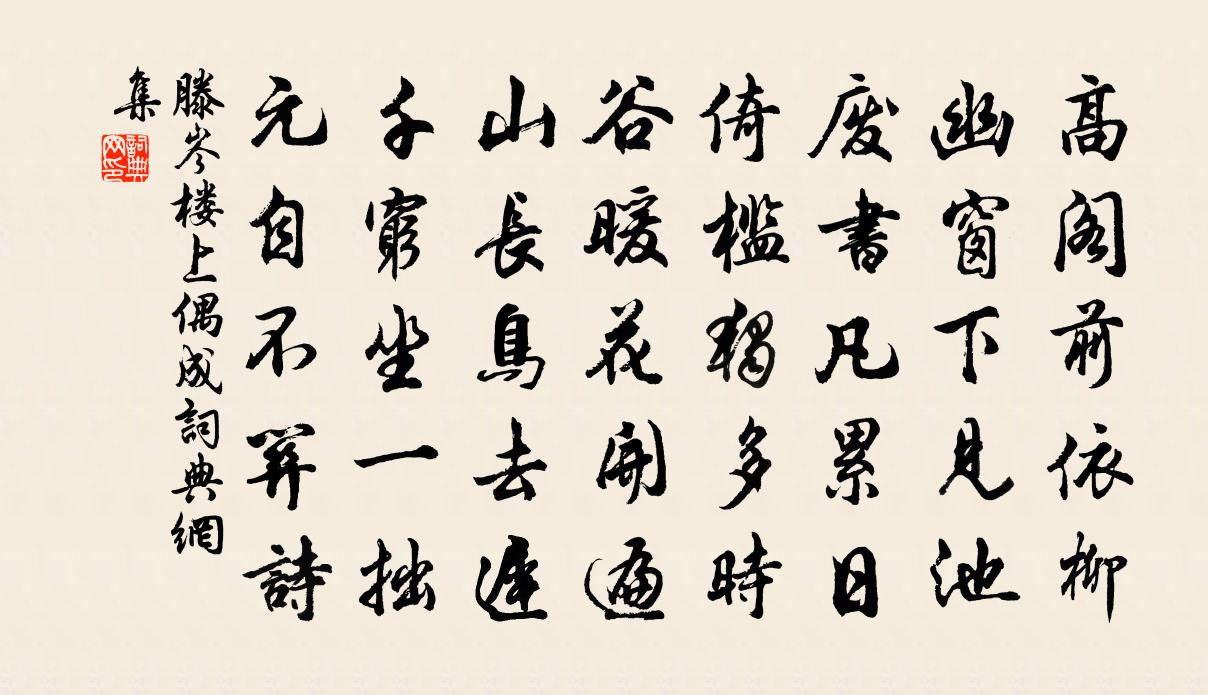 高閣前依柳
幽窗下見池
廢書凡累日
倚檻獨多時
谷暖花開遍
山長鳥去遲
千窮坐一拙
元自不關詩
滕岑楼上偶成詞典網
集
詞典
网印